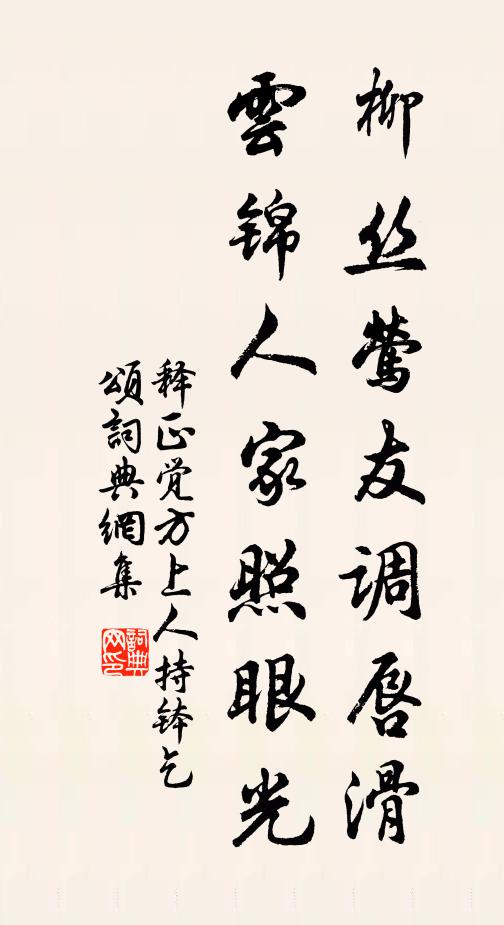 柳丝莺友调唇滑
雲锦人家照眼光
释正觉方上人持钵乞
頌詞典網集
詞典网印